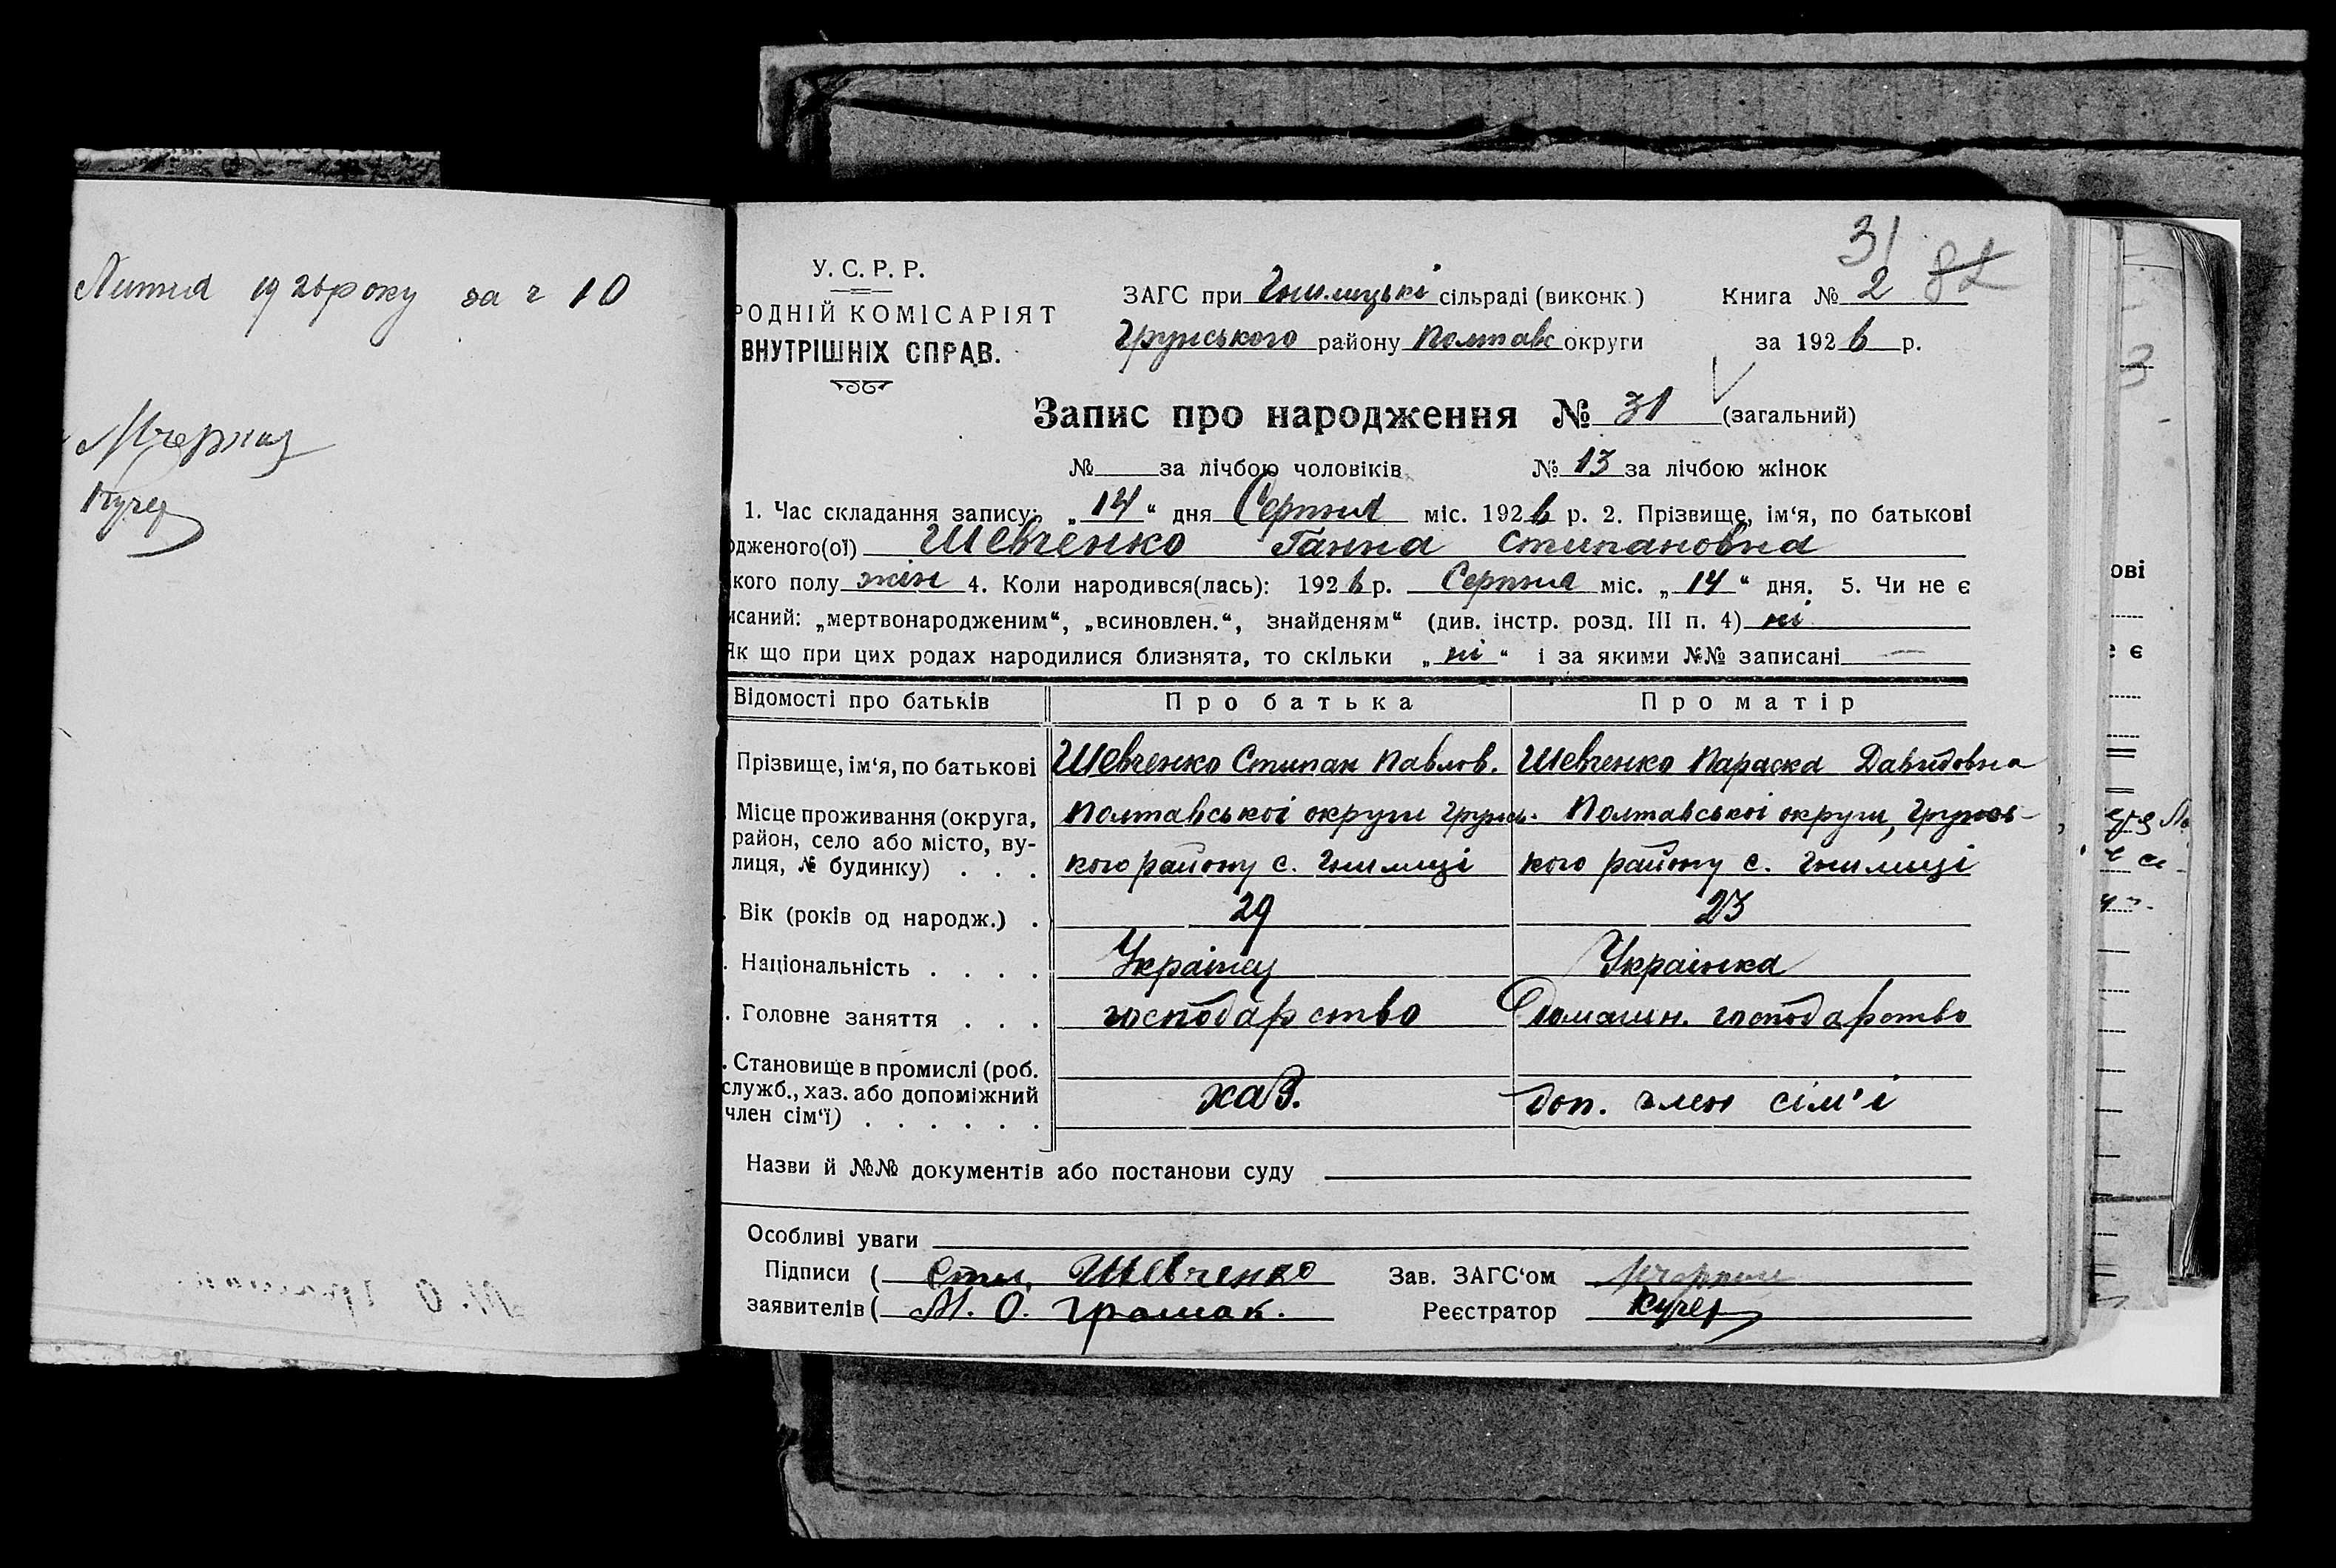 Липня 1926 року за ч 10
Кучер
31
У. С. Р. Р.
РОДНІЙ КОМІСАРІЯТ
ВНУТРІШНІХ СПРАВ.
ЗАГС при Гнилицькі сільраді (виконк.)
Грунського району Полтавс округи
Книга № 2 82
за 1926 р.
Запис про народження № 31 (загальний)
№ за лічбою чоловіків № 13 за лічбою жінок
1. Час складання запису: „14“ дня Серпня міс. 1926 р. 2. Прізвище, ім‘я, по батькові
одженого(ої) Шевченко Ганна Стипановна
кого полу жін 4. Коли народився(лась): 1926 р. Серпня міс. „14“ дня. 5. Чи не є
исаний: „мертвонародженим“, „всиновлен.“, знайденям“ (див. інстр. розд. III п. 4) ні
Як що при цих родах народилися близнята, то скільки „ні“ і за якими №№ записані —
Відомості про батьків Про батька Про матір
Прізвище, ім‘я, по батькові Шевченко Стипан Павлов. Шевченко Параска Давидовна
Місце проживання (округа, Полтавської округи Грунсь- Полтавської округи, Грунсь-
район, село або місто, ву-
лиця, № будинку) . . . кого району с. Гнилиці кого району с. Гнилиці
Вік (років од народж.) . 29 23
. Національність . . . . Українец Українка
. Головне заняття . . . господарство Домашн. господарство
. Становище в промислі (роб.
служб., хаз. або допоміжний хаз. доп. член сім'ї
член сім‘ї) . . . . . .
Назви й №№ документів або постанови суду
Особливі уваги
Підписи ( Стип. Шевченко Зав. ЗАГС‘ом
заявителів ( М. О. Грамак. Реєстратор Кучер
ові
є